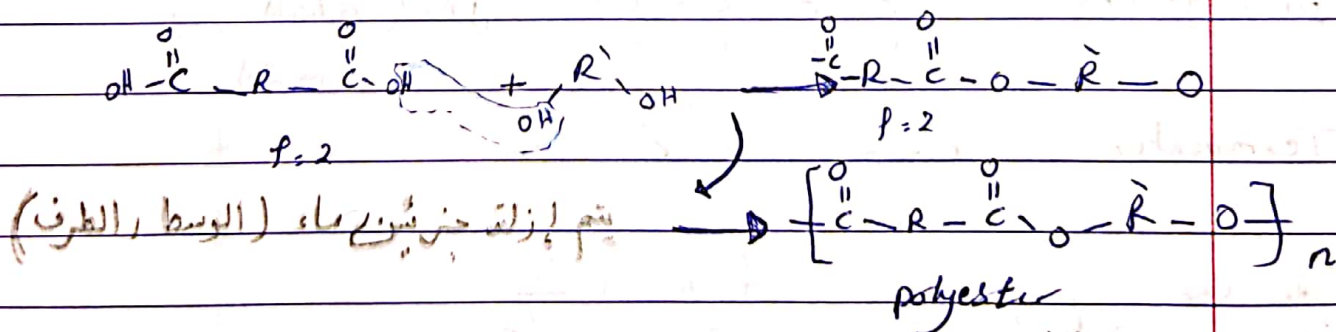 OH-C(=O)-R-C(=O)-OH + OH-R`-OH → -C(=O)-R-C(=O)-O-R`-O
f=2 f=2
يتم إزالة جزيئين ماء (الوسط، الطرف) → [-C(=O)-R-C(=O)-O-R`-O-]n
polyester